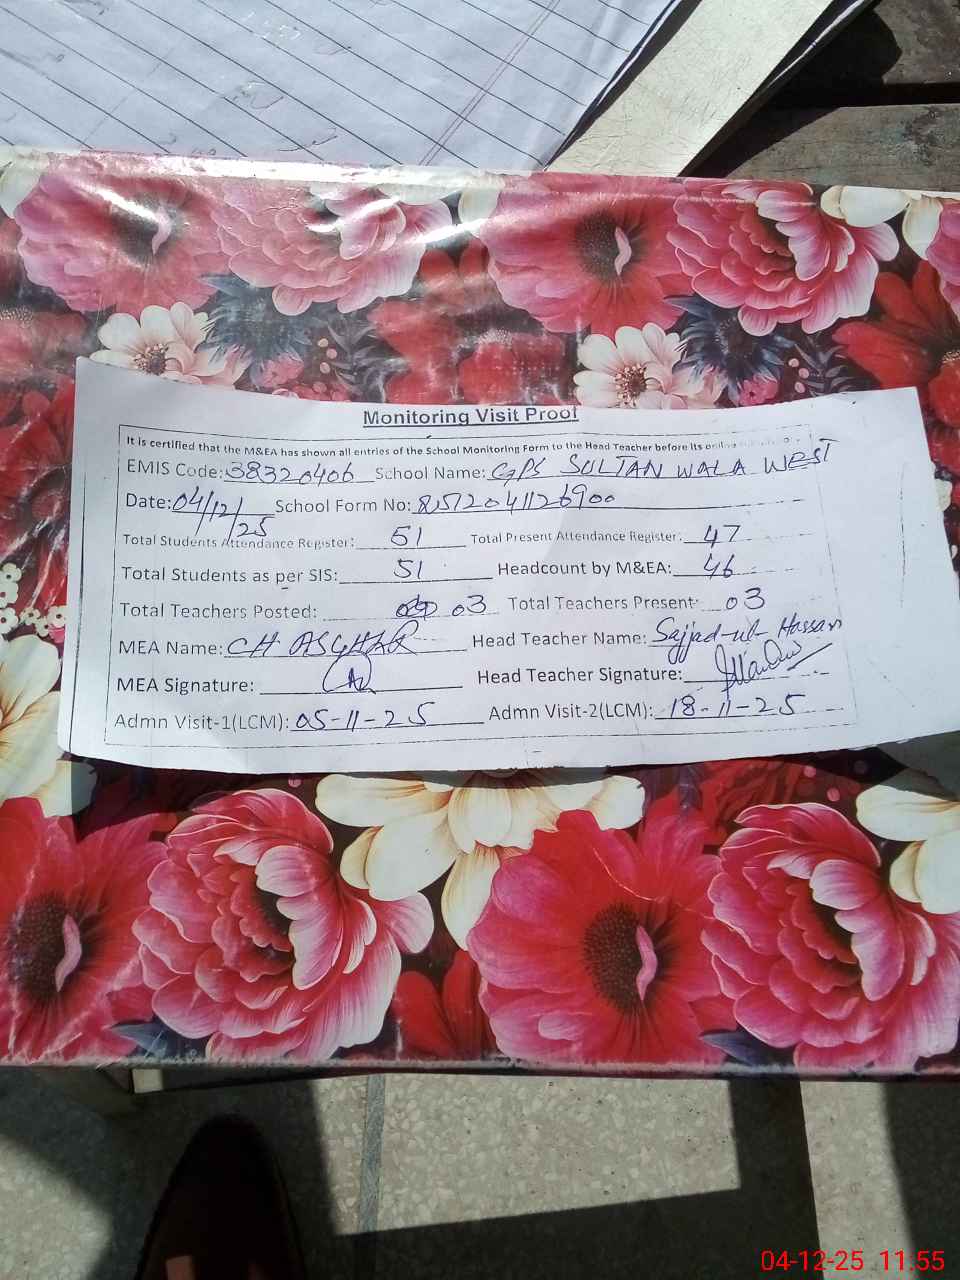 Monitoring Visit Proof
It is certified that the M&EA has shown all entries of the School Monitoring Form to the Head Teacher before its
EMIS Code: 38320406 School Name: GPS SULTAN WALA WEST
Date: 04/12/25 School Form No: 8512041126900
Total Students Attendance Register: 51 Total Present Attendance Register: 47
Total Students as per SIS: 51 Headcount by M&EA: 46
Total Teachers Posted: 03 Total Teachers Present: 03
MEA Name: CH ASGHAR Head Teacher Name: Sajjad-ul-Hassan
MEA Signature: Head Teacher Signature:
Admn Visit-1(LCM): 05-11-25 Admn Visit-2(LCM): 18-11-25
04-12-25 11.55